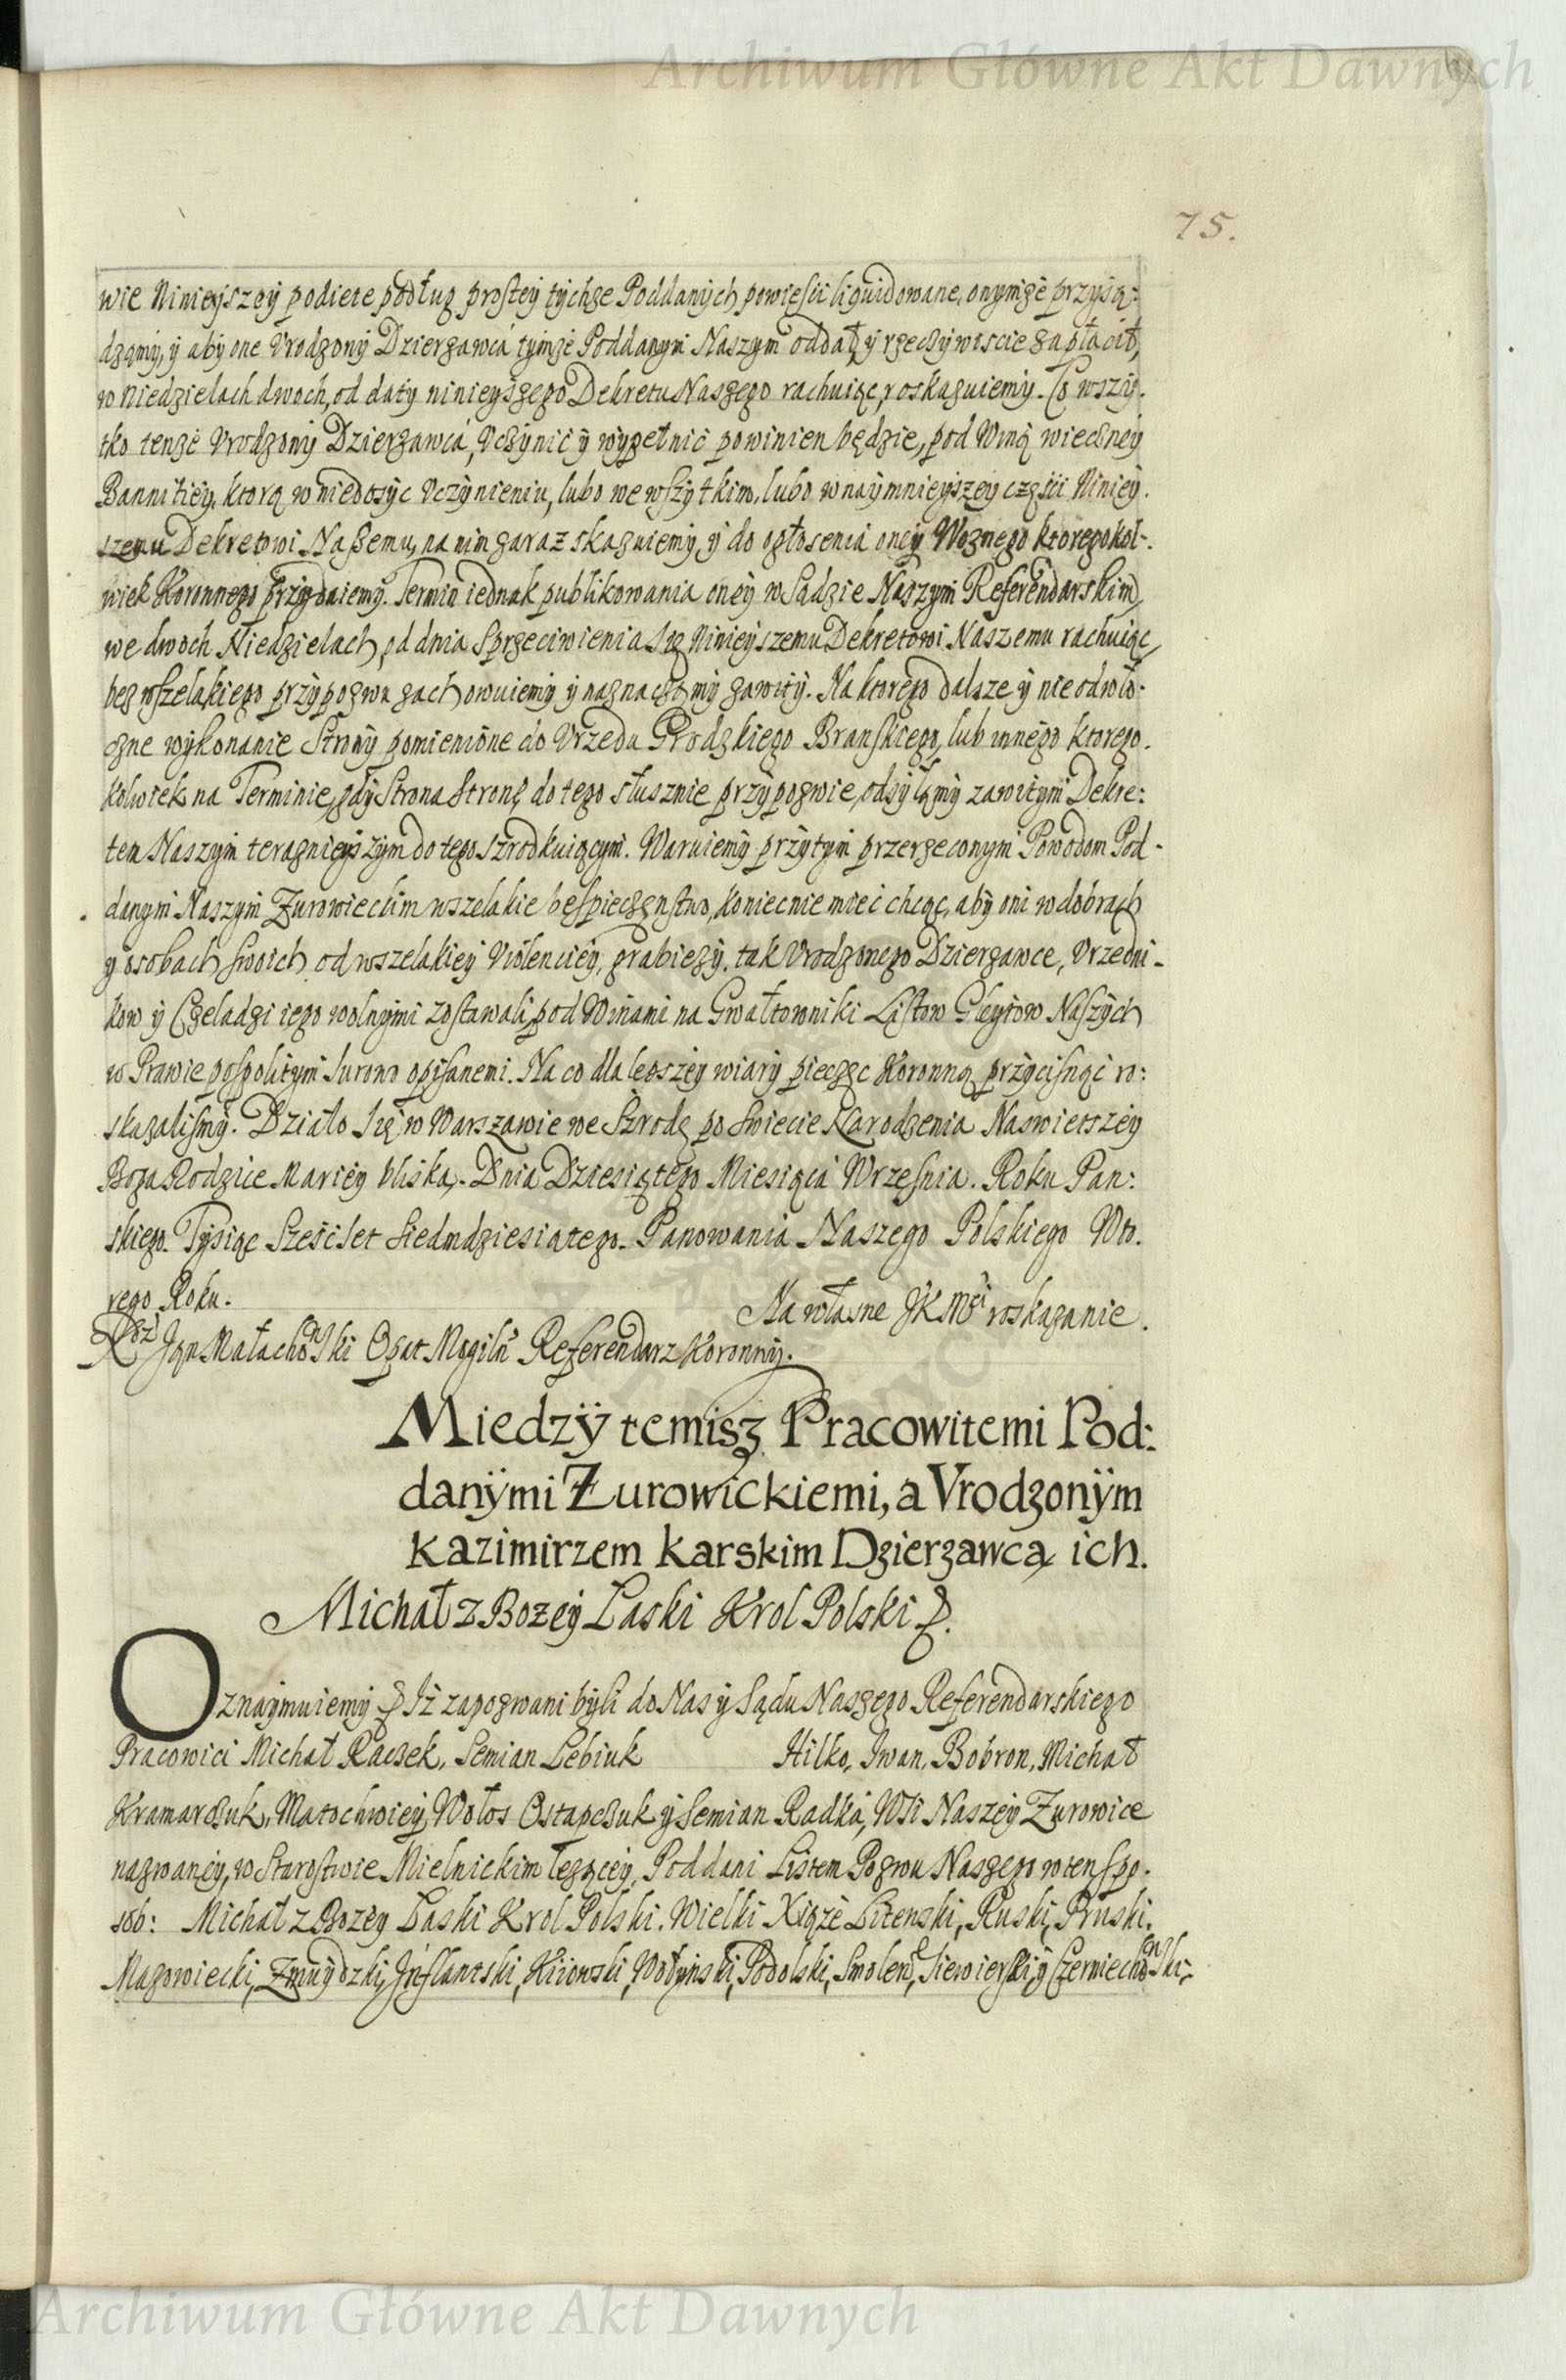 Archiwum Główne Akt Dawnych
75.
wie Ninieyszey podiete podług prostey tychze Poddanych powieści liquidowane, onymże przysą:
dzamy, y aby one Vrodzony Dzierzawca tymże Poddanym Naszym oddał y rzeczywiscie zapłacił,
w Niedzielach dwoch, od daty ninieyszego Dekretu Naszego rachuiąc, roskazuiemy. Co wszy-
tko tenże Vrodzony Dzierzawca, Vczynić y wypełnić powinien będzie, pod Winą wieczney
Bannitiey, ktorą w niedosyc Vczynieniu, lubo we wszytkim, lubo w naymnieyszey części Niniey-
szemu Dekretowi Naszemu, na nim zaraz skazuiemy, y do ogłosenia oney Woznego ktoregokol-
wiek Koronnego przydaiemy. Termin iednak publikowania oney w Sądzie Naszym Referendarskim,
we dwoch Niedzielach, od dnia Sprzeciwienia Się Ninieyszemu Dekretowi Naszemu rachuiąc,
bez wszelakiego przypozwu zachowuiemy y naznaczamy zawity. Na ktorego dalsze y nieodwło-
czne wykonanie Strony pomienione do Vrzedu Grodzkiego Branskiego, lub innego ktorego-
kolwiek na Terminie, gdy Strona Stronę do tego słusznie przypozwie, odsyłamy zawitym Dekre:
tem Naszym teraznieyszym do tego szrodkuiącym. Waruiemy przytym przerzeconym Powodom Pod-
danym Naszym Zurowieckim wszelakie beśpieczęnstwo, koniecnie mieć chcąc, aby oni w dobrach
y osobach swoich od wszelakiey Violenciey, grabiezy, tak Vrodzonego Dzierzawce, Vrzedni-
kow y Czeladzi iego wolnymi zostawali, pod Winami na Gwałtowniki Listow Gleytow Naszych
w Prawie pospolitym surowo opisanemi. Na co dla lepszey wiary pieczęc Koronną przycisnąć ro:
skazalismy. Działo Się w Warszawie we Szrodę po Swiecie Narodzenia Naswietszey
Boga Rodzice Mariey bliska. Dnia Dziesiątego Miesiąca Wrzesnia. Roku Pan:
skiego. Tysiąc Sześćset Siedmdziesiatego. Panowania Naszego Polskiego Wto-
rego Roku.
Na własne JKMści roskazanie.
Xdz Jan Małachowski Opat Mogilń Referendarz Koronny.
Miedzÿ temisz Pracowitemi Pod:
danÿmi Zurowickiemi, a Vrodzonÿm
Kazimirzem Karskim Dzierzawcą ich.
Michał z Bozey Łaski Krol Polski &.
Oznaymuiemy & Iż zapozwani byli do Nas y Sądu Naszego Referendarskiego
Pracowici Michał Raczek, Semian Lebiuk Hilko, Iwan, Bobron, Michał
Kramarczuk, Matochwiey, Wołos Ostapczuk y Semian Radka, Wśi Naszey Zurowice
nazwaney, w Starostwie Mielnickim leżącey, Poddani Listem Pozwu Naszego w ten spo-
sob: Michał z Bozey Łaski Krol Polski. Wielki Xiąże Litenski, Ruski, Pruski.
Mazowiecki, Zmuydzki, Inflantski, Kiiowski, Wołynski, Podolski, Smolen, Siewierski, y Czerniechowski,
Archiwum Główne Akt Dawnych